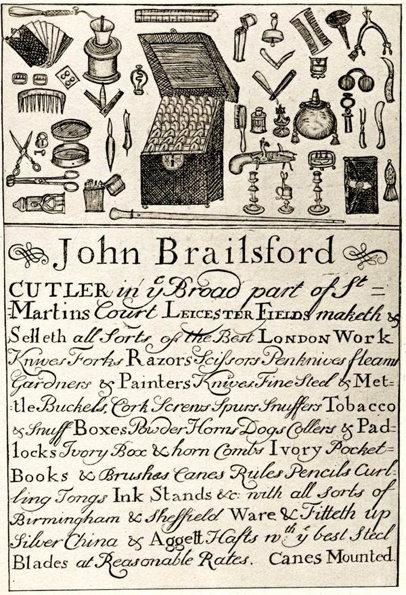 John Brailsford
CUTLER in yͤ Broad part of Sͭ =
-Martins Court LEICESTER FIELDS maketh &
Selleth all Sorts of the Best LONDON WORK
Knives Forks Razors Scissors Penknives fleams
Gardners & Painters Knives Fine Steel & Met-
-tle Buckels, Cork Screws Spurs Snuffers Tobacco
& Snuff Boxes Powder Horns Dogs Collers & Pad-
-locks Ivory Box & horn Combs Ivory Pocket-
Books & Brushes Canes Rules Pencils Curl-
-ling Tongs Ink Stands &c with all sorts of
Birmingham & Sheffield Ware & Fitteth up
Silver China & Aggett Hafts wͭͪ yͤ best Steel
Blades at Reasonable Rates. Canes Mounted.